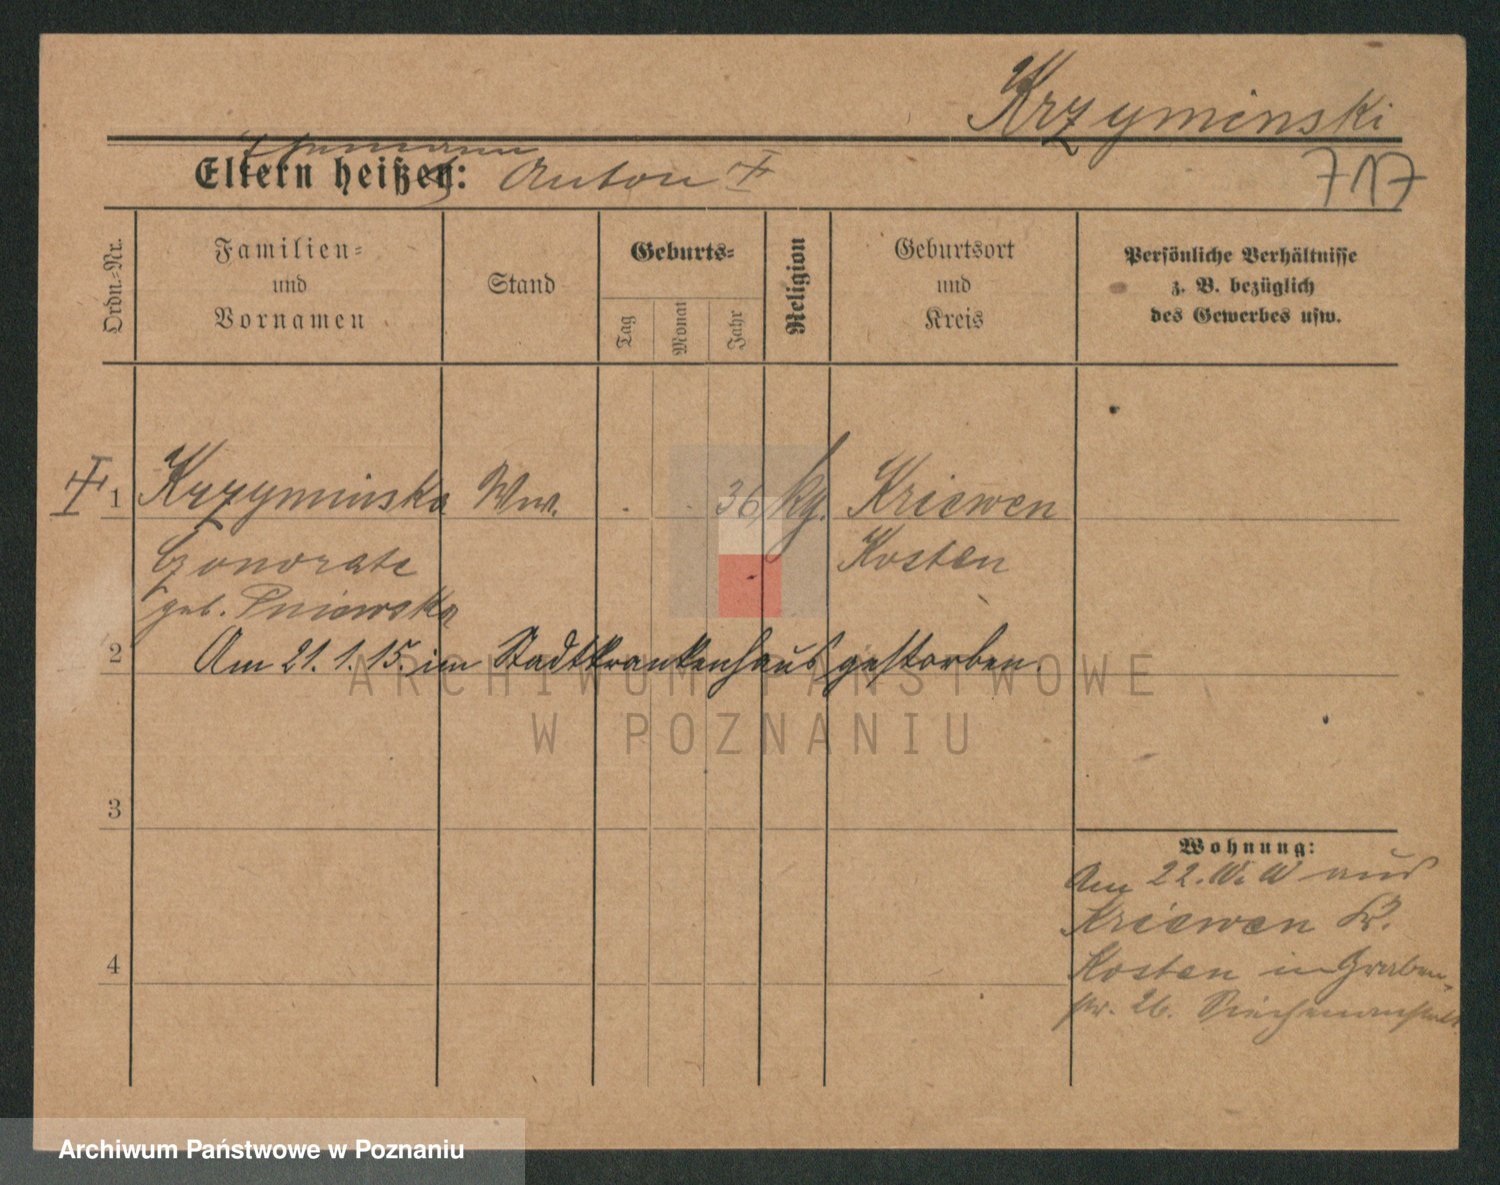 Krzyminski
Ehemann
Eltern heißen: Anton
717
Ordn.-Nr.
Familien-
und
Vornamen
Stand
Geburts-
Tag
Monat
Jahr
Religion
Geburtsort
und
Kreis
Persönliche Verhältnisse
z. B. bezüglich
des Gewerbes usw.
1 Krzyminska Ww. 36 kg. Kriewen
Kosten
geb. Pniewska
2 Am 21. 1. 15. im Stadtkrankenhaus gestorben.
ARCHIWUM PAŃSTWOWE
W POZNANIU
3
Wohnung:
Am 22. aus
Kriewen Kr.
4
Kosten in Graben-
str. 26. Siechenanstalt
Archiwum Państwowe w Poznaniu